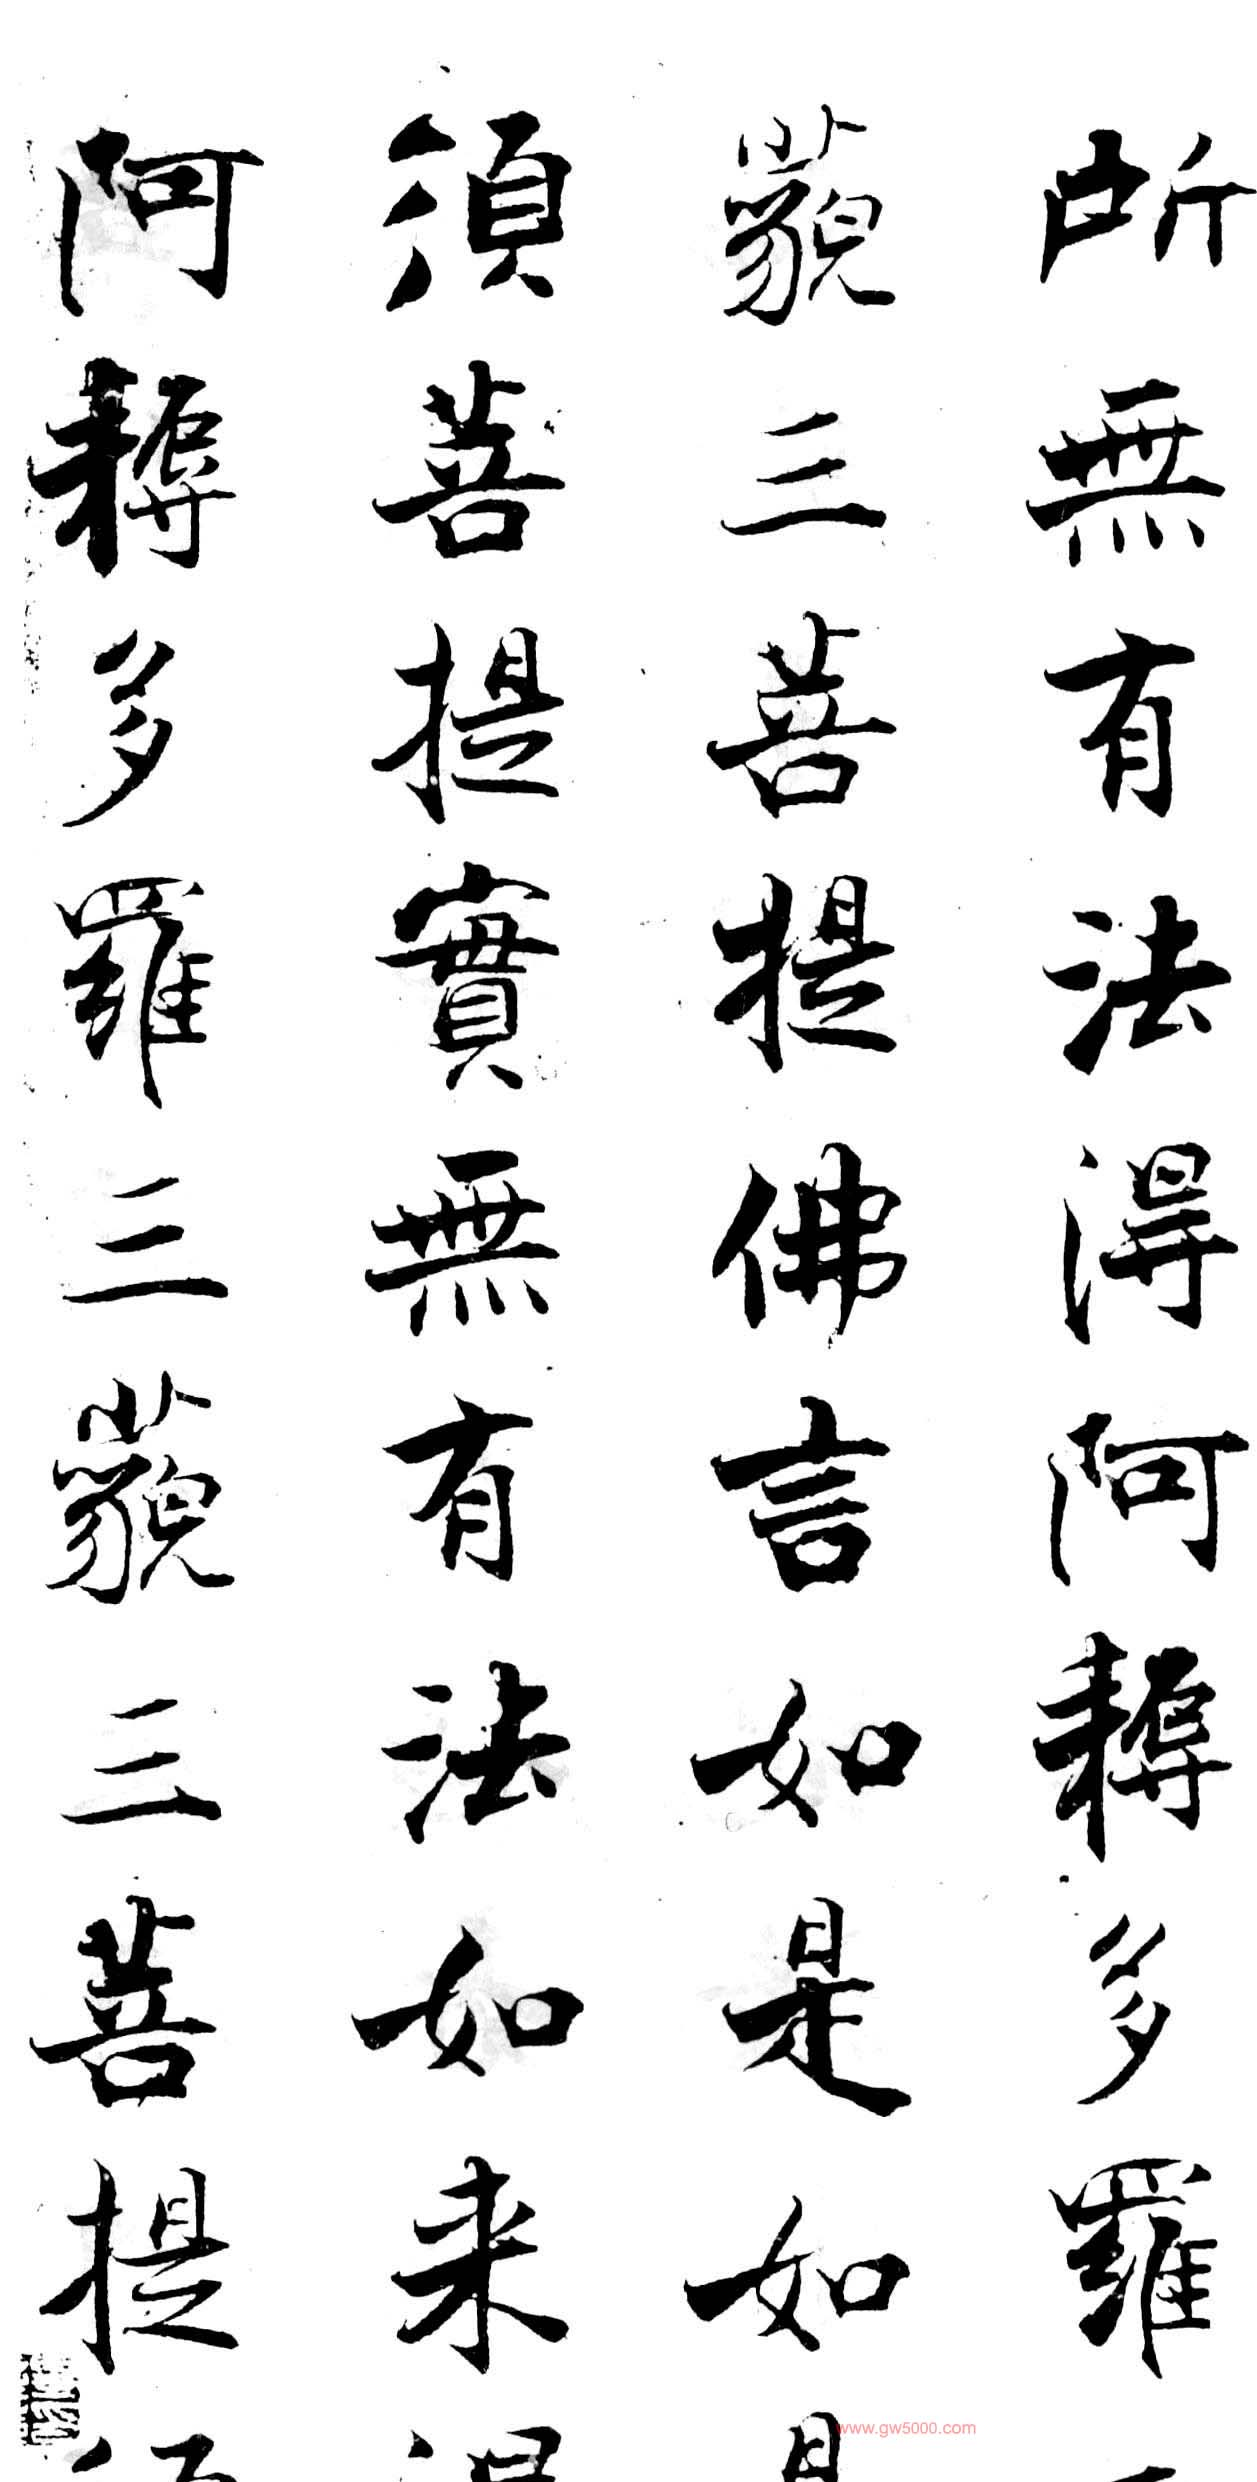 所無有法得阿耨多羅
藐三菩提佛言如是如
須菩提實無有法如来
阿耨多羅三藐三菩提
www.gw5000.com